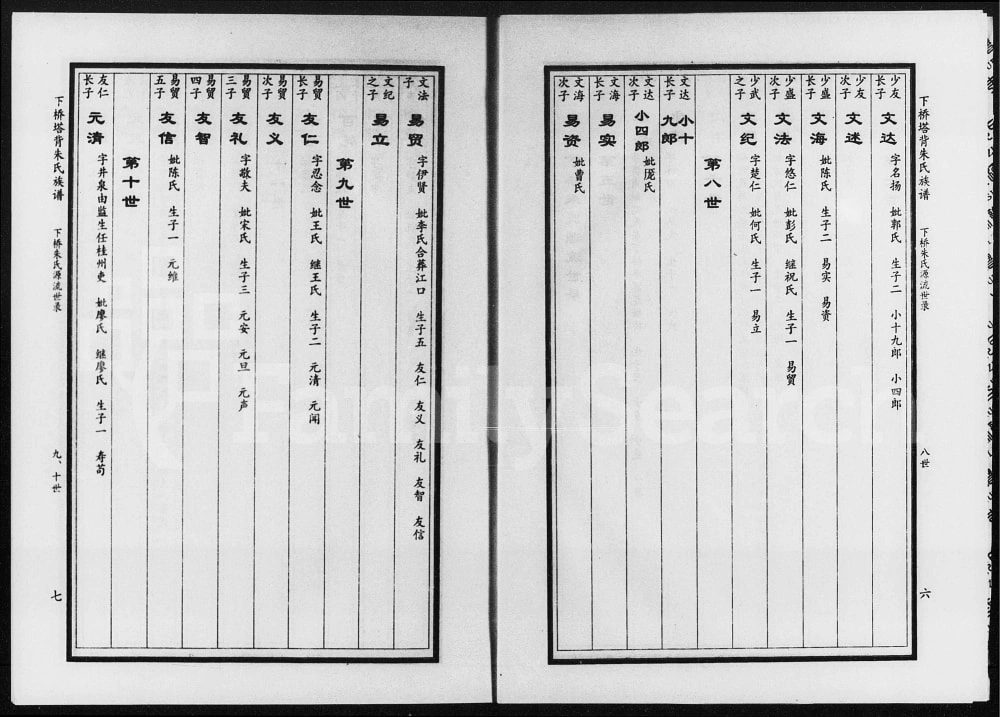 下桥塔背朱氏族谱 下桥朱氏源流世录 八世 六
少友长子 文达 字名扬 妣郭氏 生子二 小十九郎 小四郎
少友次子 文述
少盛长子 文海 妣陈氏 生子二 易实 易资
少盛次子 文法 字悠仁 妣彭氏 继祝氏 生子一 易贸
少武之子 文纪 字楚仁 妣何氏 生子一 易立
第八世
文达长子 小十九郎
文达次子 小四郎 妣厐氏
文海长子 易实
文海次子 易资 妣曹氏
文法子 易贸 字伊贤 妣李氏合葬江口 生子五 友仁 友义 友礼 友智 友信
文纪之子 易立
第九世
易贸长子 友仁 字忍念 妣王氏 继王氏 生子二 元清 元闻
易贸次子 友义
易贸三子 友礼 字敬夫 妣宋氏 生子三 元安 元旦 元声
易贸四子 友智
易贸五子 友信 妣陈氏 生子一 元维
第十世
友仁长子 元清 字井泉由监生任桂州吏 妣廖氏 继廖氏 生子一 寿苟
下桥塔背朱氏族谱 下桥朱氏源流世录 九、十世 七
FamilySearch